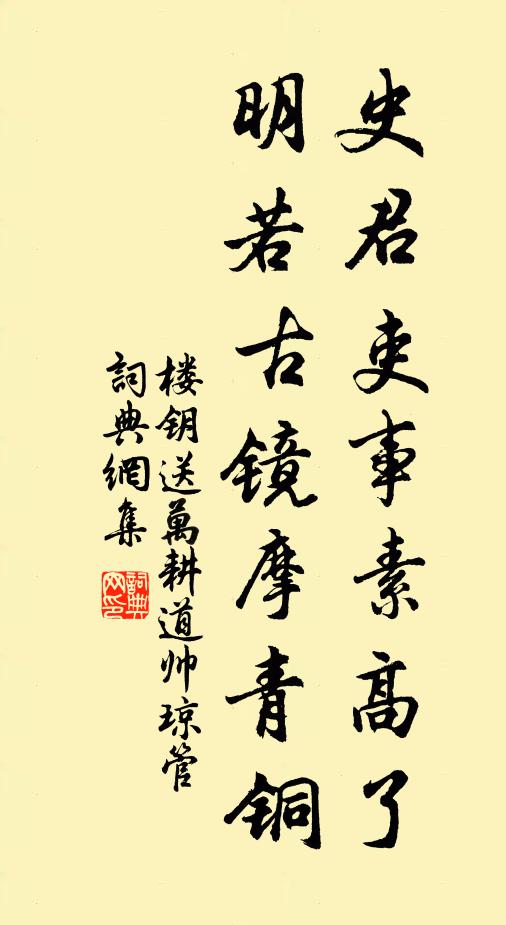 史君吏事素高了
明若古镜摩青铜
楼钥送萬耕道帅琼管
詞典網集
詞典网印